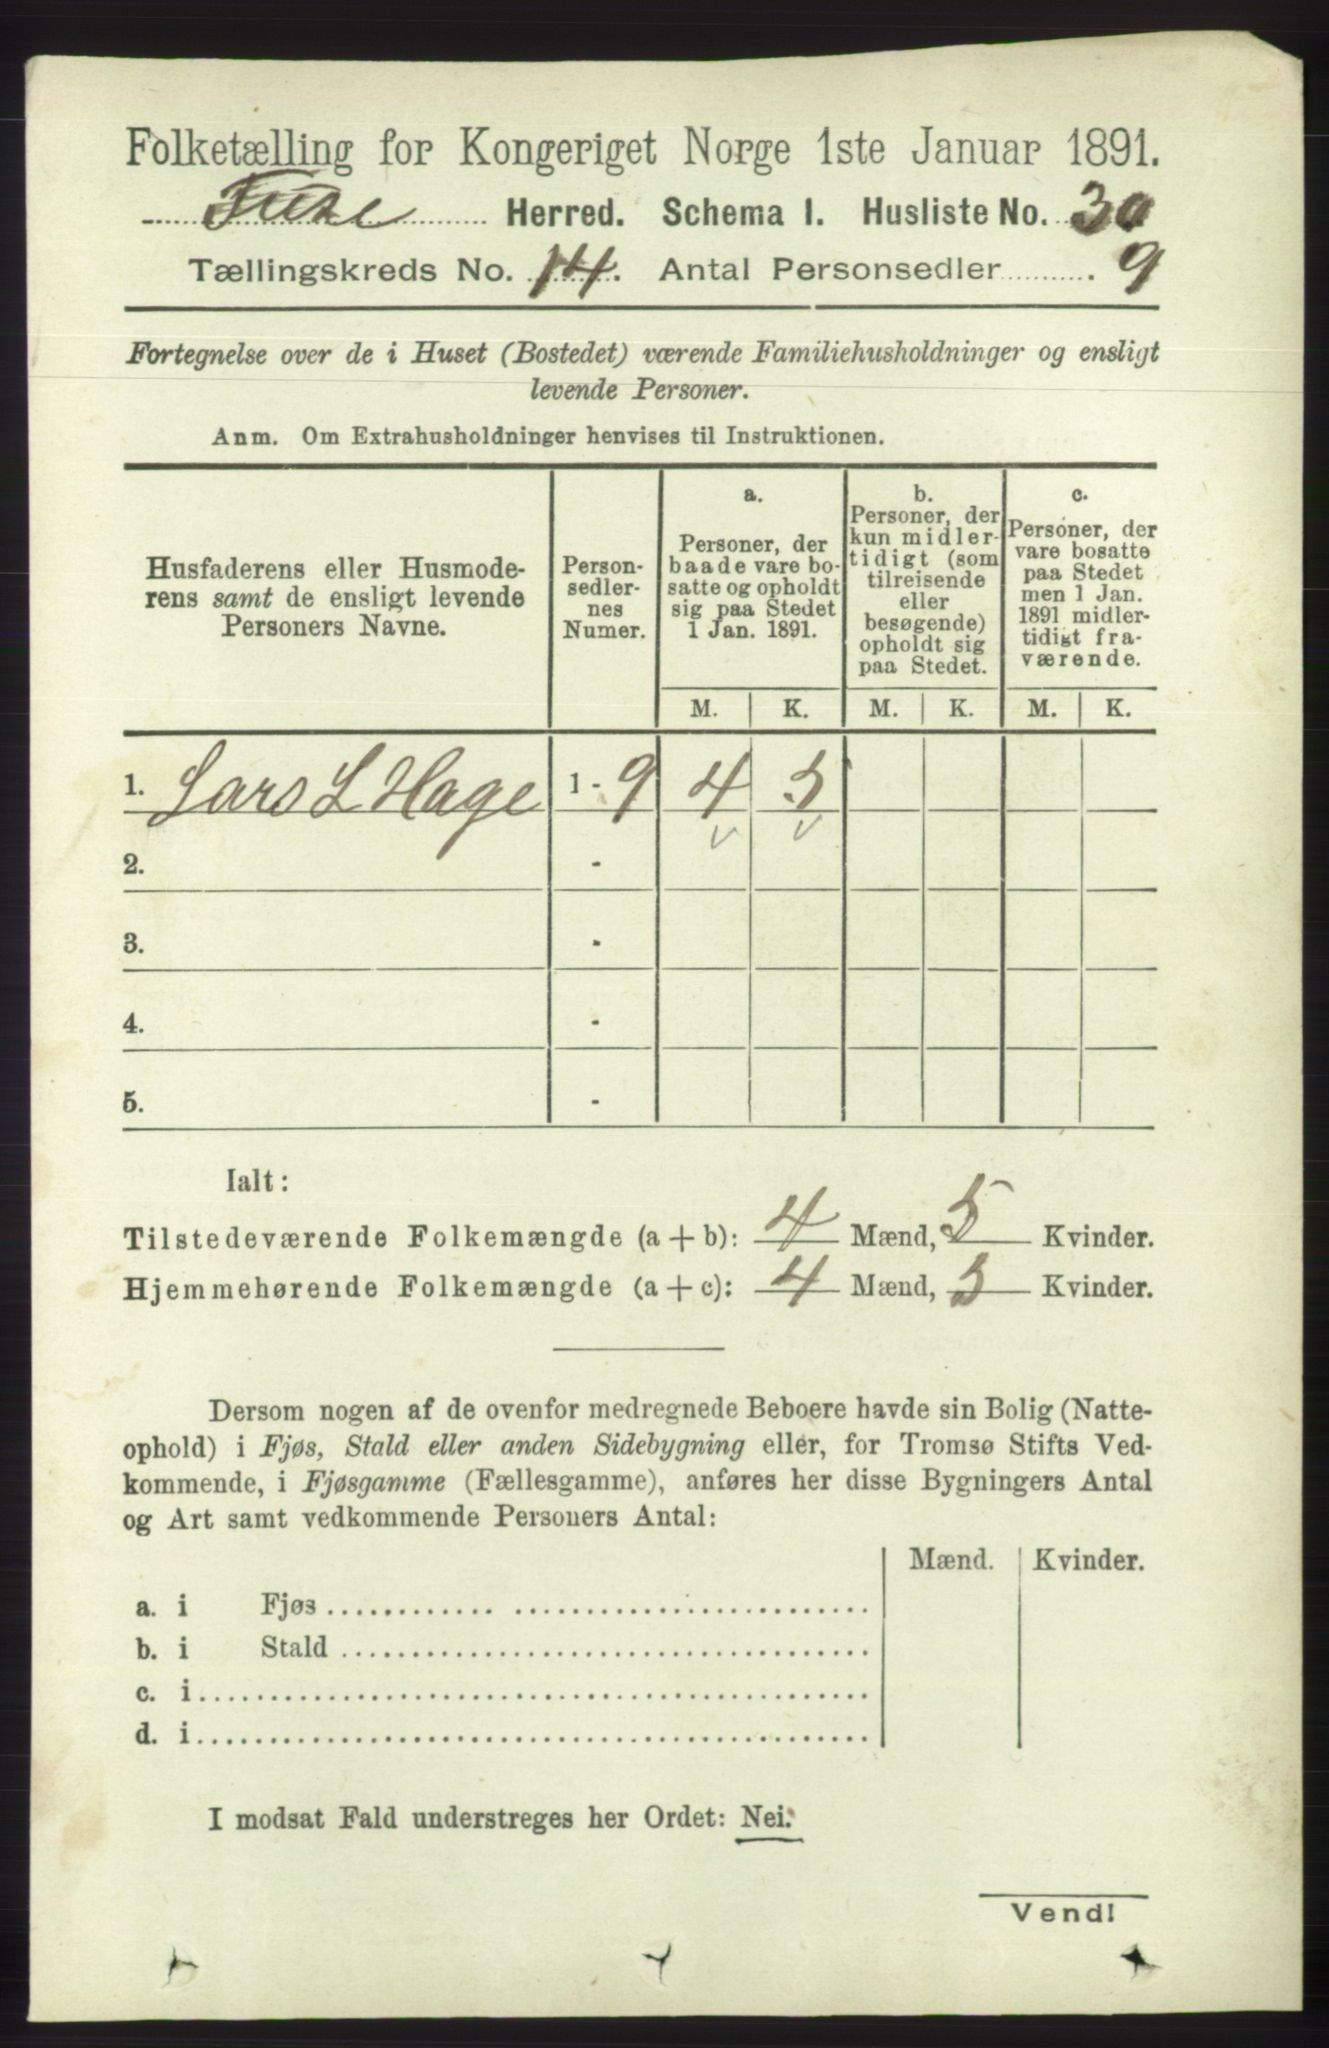 Folketælling for Kongeriget Norge 1ste Januar 1891.
Herred. Schema I. Husliste No. 30
Tællingskreds No. 14. Antal Personsedler . 9
Fortegnelse over de i Huset (Bostedet) værende Familiehusholdninger og ensligt
levende Personer.
Anm. Om Extrahusholdninger henvises til Instruktionen.
Husfaderens eller Husmode-
rens samt de ensligt levende
Personers Navne.
Person-
sedler-
nes
Numer.
a.
Personer, der
baade vare bo-
satte og opholdt
sig paa Stedet
1 Jan. 1891.
b.
Personer, der
kun midler-
tidigt (som
tilreisende
eller
besøgende)
opholdt sig
paa Stedet.
c.
Personer, der
vare bosatte
paa Stedet
men 1 Jan.
1891 midler-
tidigt fra-
værende.
M. K. M. K. M. K.
1. Lars L Hage 1 - 9 4 5
2. -
3. -
4. -
5. -
Ialt:
Tilstedeværende Folkemængde (a + b): 4 Mænd, 5 Kvinder.
Hjemmehørende Folkemængde (a + c): 4 Mænd, 5 Kvinder.
Dersom nogen af de ovenfor medregnede Beboere havde sin Bolig (Natte-
ophold) i Fjøs, Stald eller anden Sidebygning eller, for Tromsø Stifts Ved-
kommende, i Fjøsgamme (Fællesgamme), anføres her disse Bygningers Antal
og Art samt vedkommende Personers Antal:
Mænd. Kvinder.
a. i Fjøs
b. i Stald
c. i
d. i
I modsat Fald understreges her Ordet: Nei.
Vend!